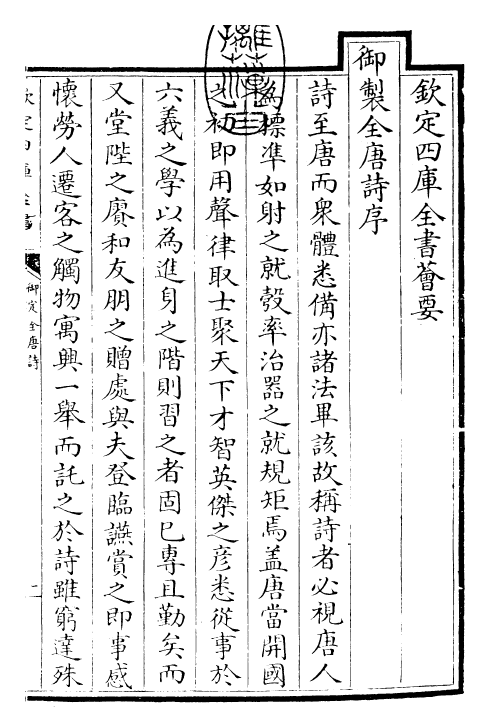 欽定四庫全書薈要
御製全唐詩序
詩至唐而衆體悉備亦諸法畢該故稱詩者必視唐人
為標準如射之就彀率治器之就規矩焉蓋唐當開國
之初即用聲律取士聚天下才智英傑之彦悉從事於
六義之學以為進身之階則習之者固已專且勤矣而
又堂陛之賡和友朋之贈處與夫登臨讌賞之即事感
懷勞人遷客之觸物寓興一舉而託之於詩雖窮達殊
欽定四庫全書
御定全唐詩
一